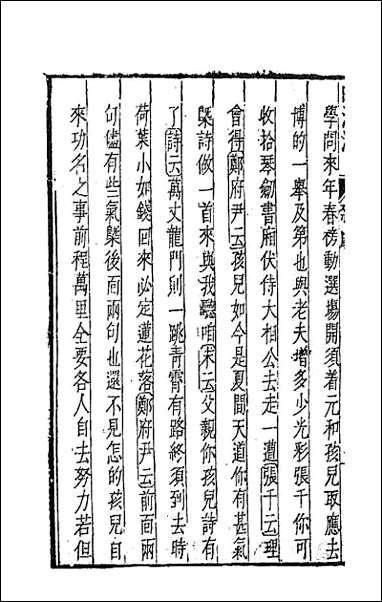 學問來年春榜動選塲開須着元和孩兒取應去
博的一舉及第也與老夫增多少光彩張千你可
收拾琴劒書廂伏侍大相公去走一遭張千云理
會得鄭府尹云孩兒如今是夏間天道你有甚氣
槩詩做一首來與我聽咱末云父親你孩兒詩有
了詩云萬丈龍門則一跳青霄有路終須到去時
荷葉小如錢回來必定蓮花落鄭府尹云前面兩
句儘有些氣槩後面兩句也還不見怎的孩兒自
來功名之事前程萬里全要各人自去努力若但